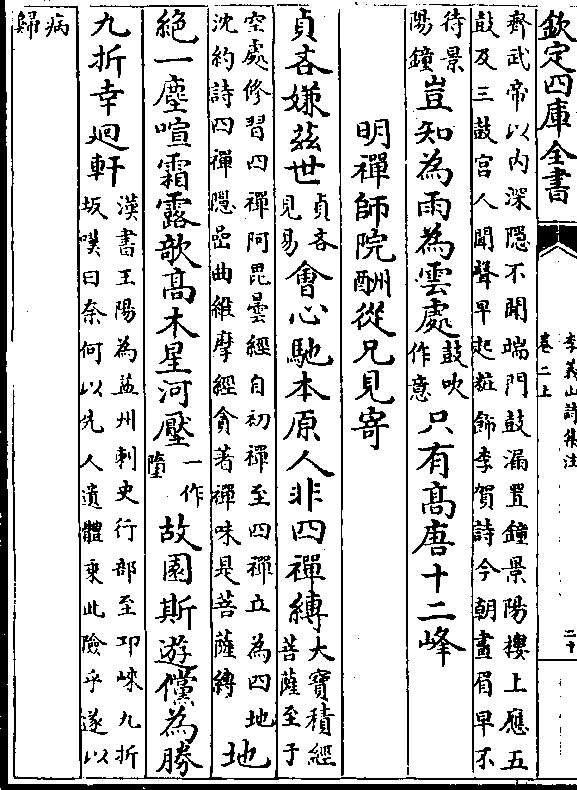 欽定四庫全書
李義山詩集注
卷二上
二十
齊武帝以内深隱不聞端門鼓漏置鐘景陽樓上應五
鼓及三鼓宫人聞聲早起粧飾李賀詩今朝畫眉早不
待景
陽鐘
豈知為雨為雲處
鼓吹
作意
只有髙唐十二峰
明禪師院酬從兄見寄
貞吝嫌兹世
貞吝
見易
會心馳本原人非四禪縛
大寶積經
菩薩至于
空處修習四禪阿毘曇經自初禪至四禪立為四地
沈約詩四禪隱嵒曲維摩經貪著禪味是菩薩縛
地
絶一塵喧霜露欹髙木星河壓
一作
墮
故園斯遊儻為勝
九折幸迴軒
漢書王陽為益州刺史行部至邛崍九折
坂嘆曰奈何以先人遺體乗此險乎遂以
病
歸